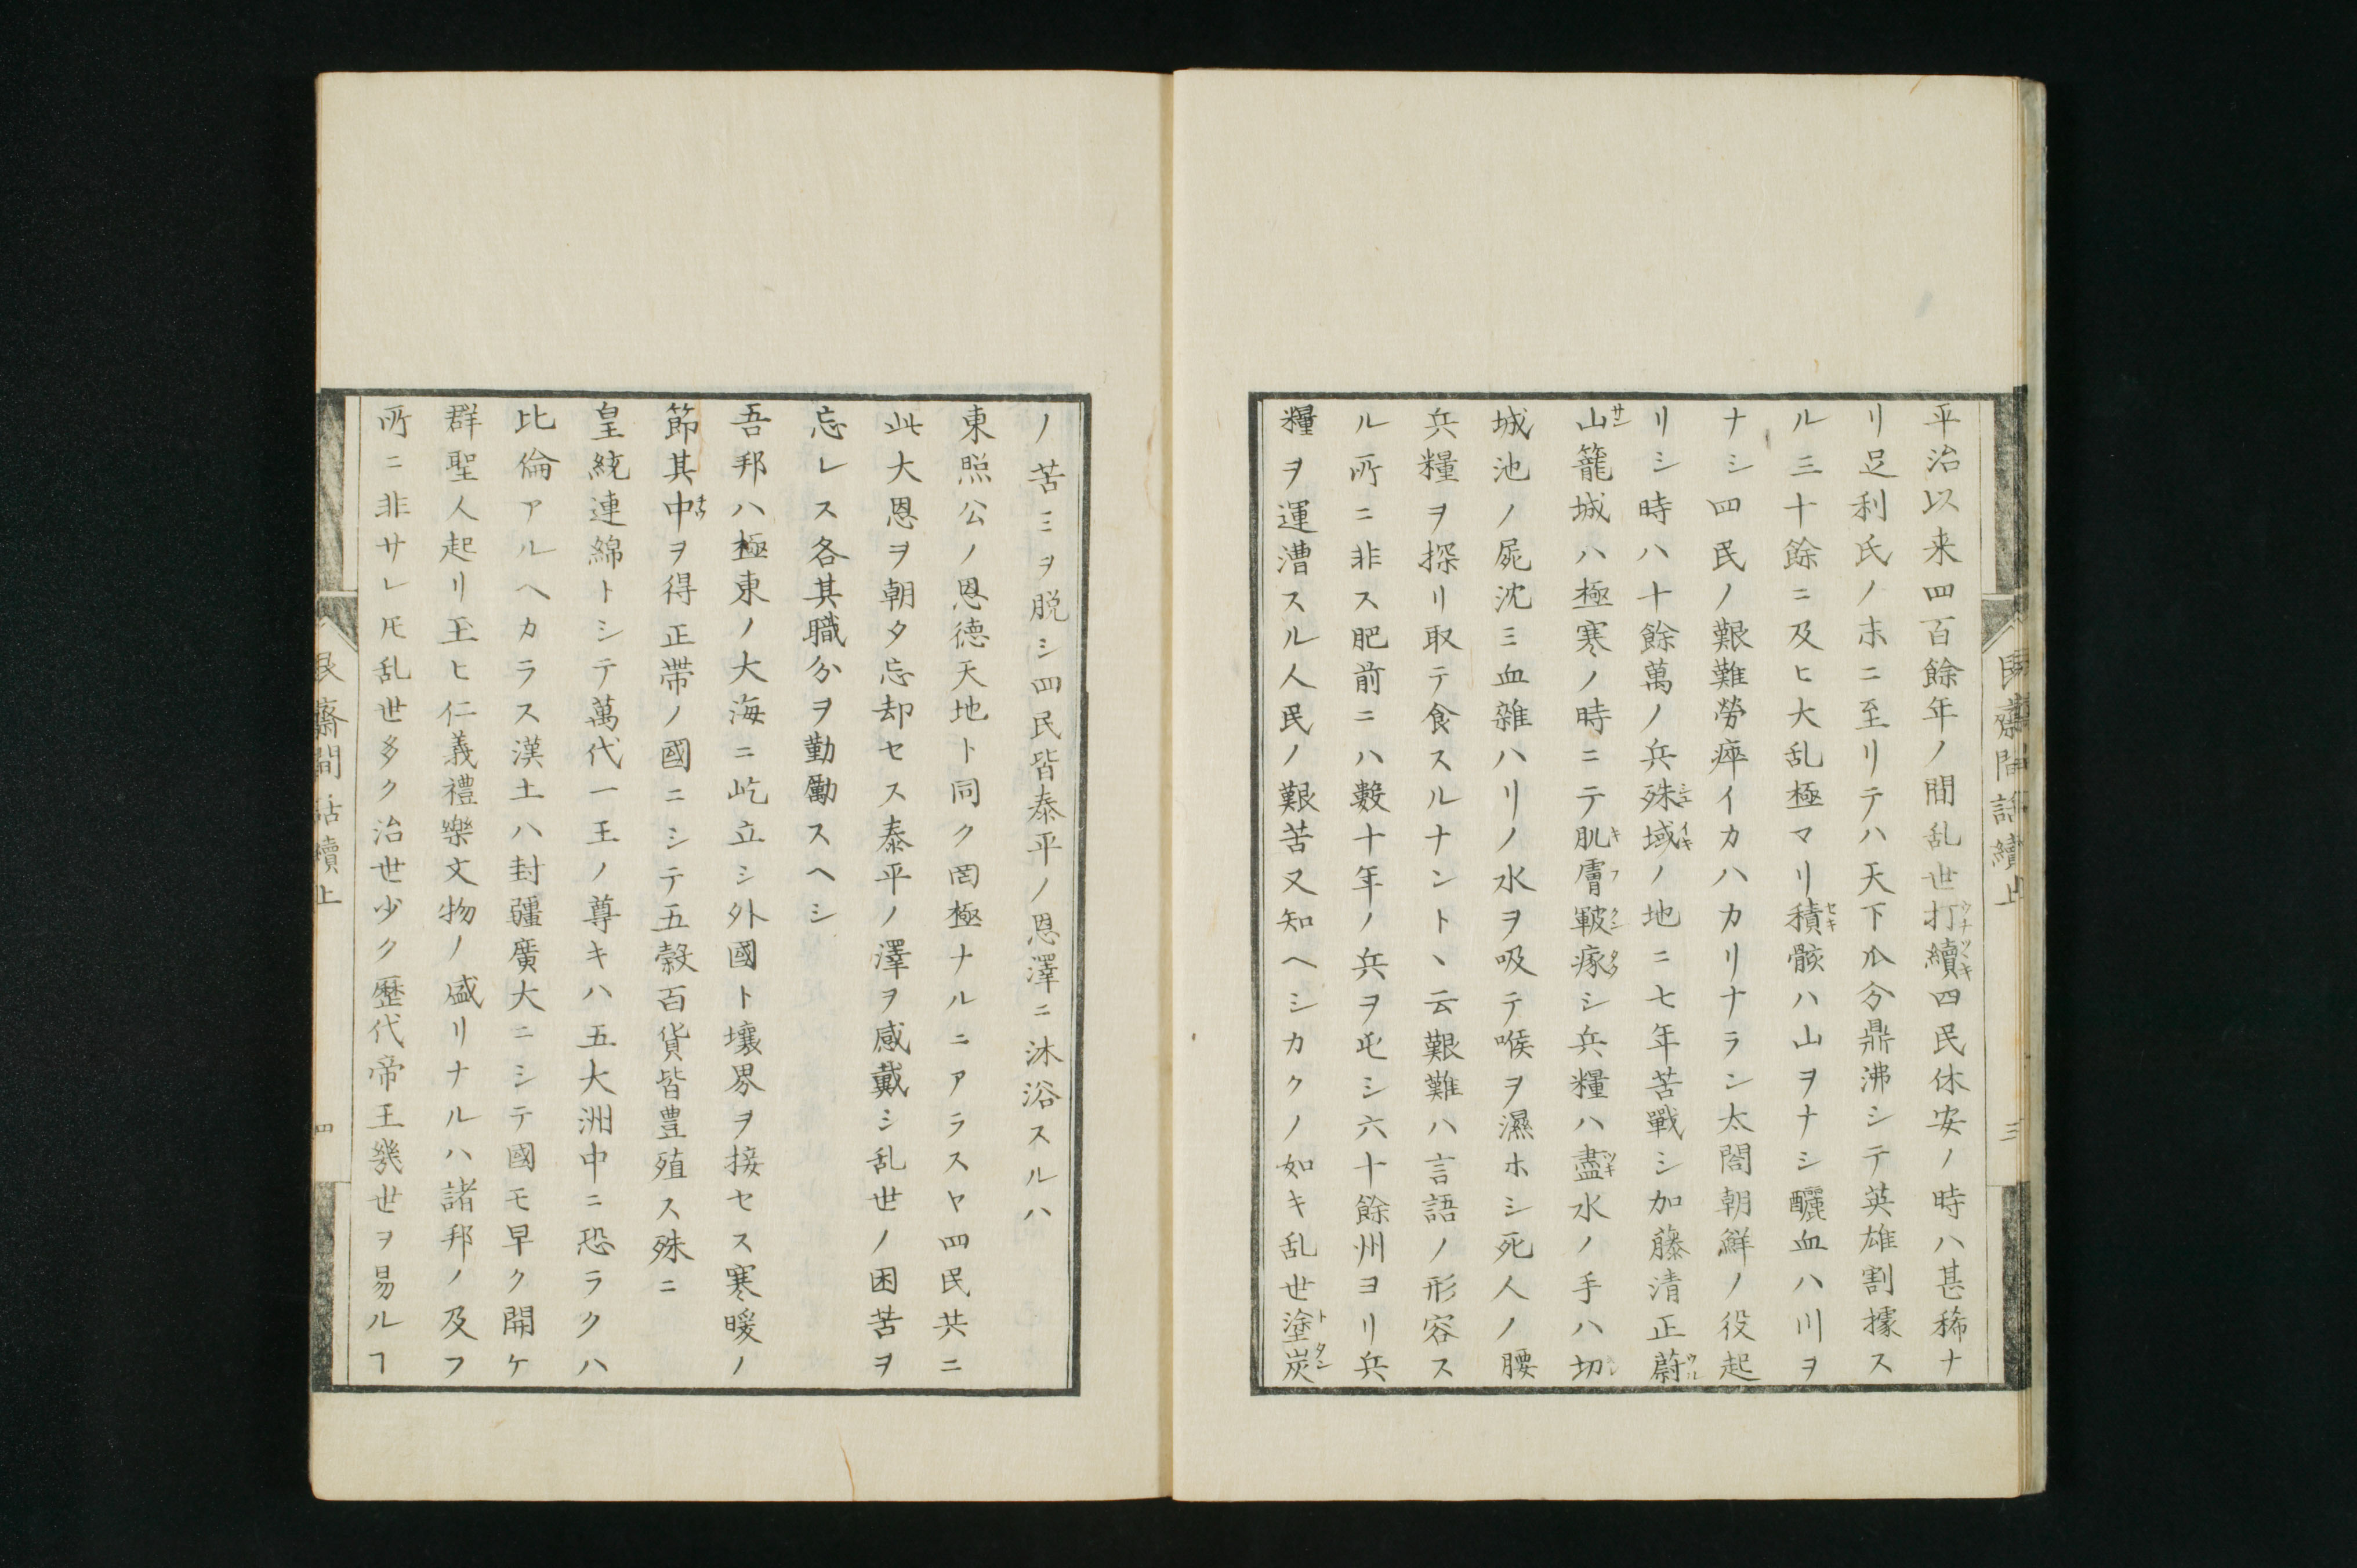 平治以来四百餘年ノ間乱世打續四民休安ノ時ハ甚稀ナ
リ足利氏ノ末ニ至リテハ天下瓜分鼎沸シテ英雄割據ス
ル三十餘ニ及ヒ大乱極マリ積骸ハ山ヲナシ釃血ハ川ヲ
ナシ四民ノ艱難勞瘁イカハカリナラン太閤朝鮮ノ役起
リシ時ハ十餘萬ノ兵殊域ノ地ニ七年苦戰シ加藤清正蔚
山籠城ハ極寒ノ時ニテ肌膚皸瘃シ兵糧ハ盡水ノ手ハ切
城池ノ屍沈ミ血雜ハリノ水ヲ吸テ喉ヲ濕ホシ死人ノ腰
兵糧ヲ探リ取テ食スルナント丶云艱難ハ言語ノ形容ス
ル所ニ非ス肥前ニハ數十年ノ兵ヲ屯シ六十餘州ヨリ兵
糧ヲ運漕スル人民ノ艱苦又知ヘシカクノ如キ乱世塗炭
ノ苦ミヲ脱シ四民皆泰平ノ恩澤ニ沐浴スルハ
東照公ノ恩德天地ト同ク罔極ナルニアラスヤ四民共ニ
此大恩ヲ朝夕忘却セス泰平ノ澤ヲ感戴シ乱世ノ困苦ヲ
忘レス各其職分ヲ勤勵スヘシ
吾邦ハ極東ノ大海ニ屹立シ外國ト壤界ヲ接セス寒暖ノ
節其中ヲ得正帯ノ國ニシテ五穀百貨皆豊殖ス殊ニ
皇統連綿トシテ萬代一王ノ尊キハ五大洲中ニ恐ラクハ
比倫アルヘカラス漢土ハ封疆廣大ニシテ國モ早ク開ケ
群聖人起リ玉ヒ仁義禮樂文物ノ盛リナルハ諸邦ノ及フ
所ニ非サレ𪜈乱世多ク治世少ク歷代帝王幾世ヲ易ルヿ
艮齋間話續上
四